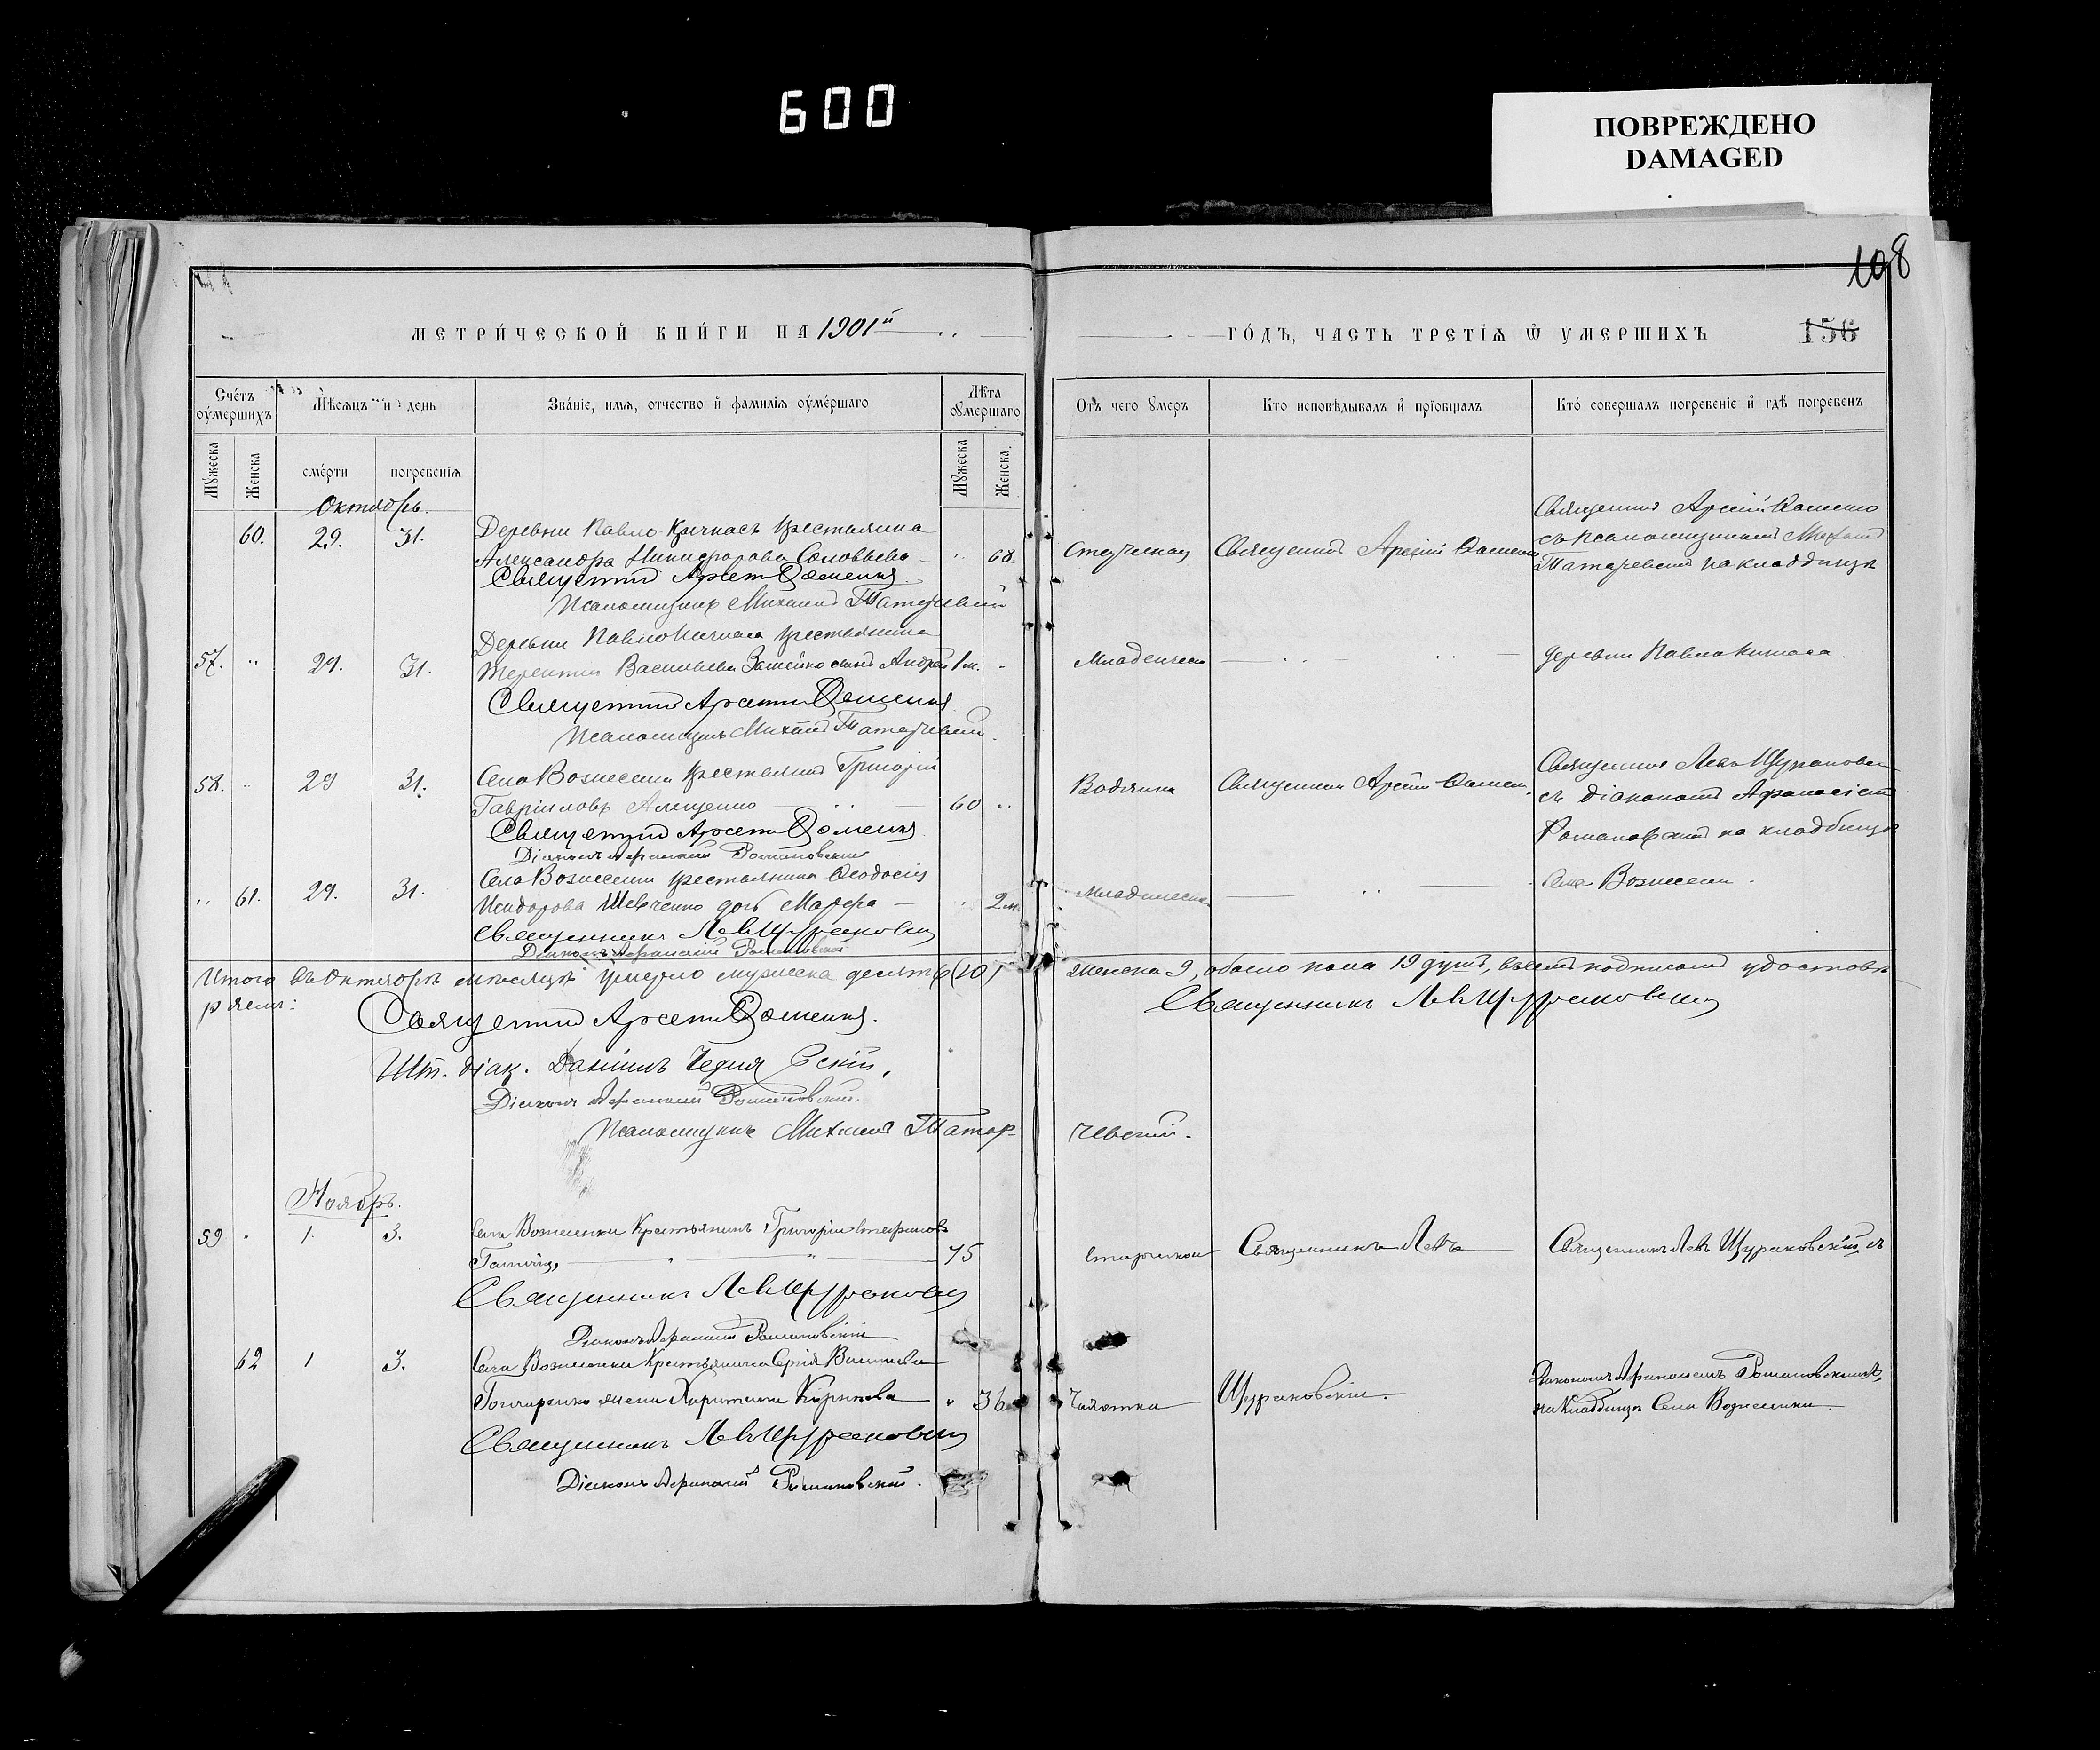 600
ПОВРЕЖДЕНО
DAMAGED
108
МЕТРИ́ЧЕСКОЙ КНИ́ГИ НА 1901й
ГО́ДЪ, ЧАСТЬ ТРЕТІѦ Ѿ УМЕРШИХЪ 156
Сче́тъ оу́мершихъ
Мѣсяцъ и день
Зва́нїе, имя, отчество й фамилїя оу́ме́ршаго
Лѣта оумершаго
Отъ чего умеръ
Кто исповѣдывалъ й прїобщалъ
Кто́ совершалъ погребенїе й гдѣ погребенъ
Мужеска
Женска
сме́рти
погребенїя
Мужеска
Женска.
Октябрь.
60. 29. 31. Деревни Павло-Кичкасъ крестьянина
Александра Никифорова Соловьева 68.
Священникъ Арсеній
Псаломщикъ Михаилъ
Старческая
Священникъ Арсеній
Священникъ Арсеній
съ псаломщикомъ Михаил
на кладбищѣ
57. " 29. 31. Деревни Павлокичкаса крестьянина
Терентія Васильева сынъ Андрей 1 м.
Священникъ Арсеній
Псаломщикъ Михаилъ
Младенческ
деревни Павлокичкаса.
58. " 29 31. Села Вознесенки крестьянинъ Григорій
Гавріиловъ 60 "
Священникъ Арсеній
Діаконъ Афанасій Романовскій
Водянка
Священникъ Арсеній
Священникъ Левъ Щураковскі
съ діакономъ Афанасіемъ
Романовскимъ на кладбищѣ
" 61. 29. 31. Села Вознесенки крестьянина Ѳеодосія
Исидорова Шевченко дочь Марфа 2 м.
Священникъ Левъ Щураковскій
Діаконъ Афанасій Романовскій
Младенческ
Села Вознесенк.
Итого въ Октябрѣ мѣсяцѣ умерло мужеска десять (10) женска 9, обоего пола 19 душъ, въ чемъ подписомъ удостовѣ
ряемъ:
Священникъ Арсеній
Священникъ Левъ Щураковскій
Шт. діак. Даніилъ
Діаконъ Афанасій Романовскій.
Псаломщикъ Михаилъ Татар-
чевскій.
Ноябрь.
59 " 1. 3. Села Вознесенки Крестьянинъ Григорій Стефановъ
75
Священникъ Левъ Щураковскій
Діаконъ Афанасій Романовскій
Старческая
Священникъ Левъ
Священникъ Левъ Щураковскій, съ
62 1 3. Села Вознесенки Крестьянина Сергія Васильева
Гончаренко жена Харитина " 36
Священникъ Левъ Щураковскій
Діаконъ Афанасій Романовскій.
Чахотка
Щураковскій.
Діакономъ Афанасіемъ Романовскимъ,
на кладбищѣ Села Вознесенки.